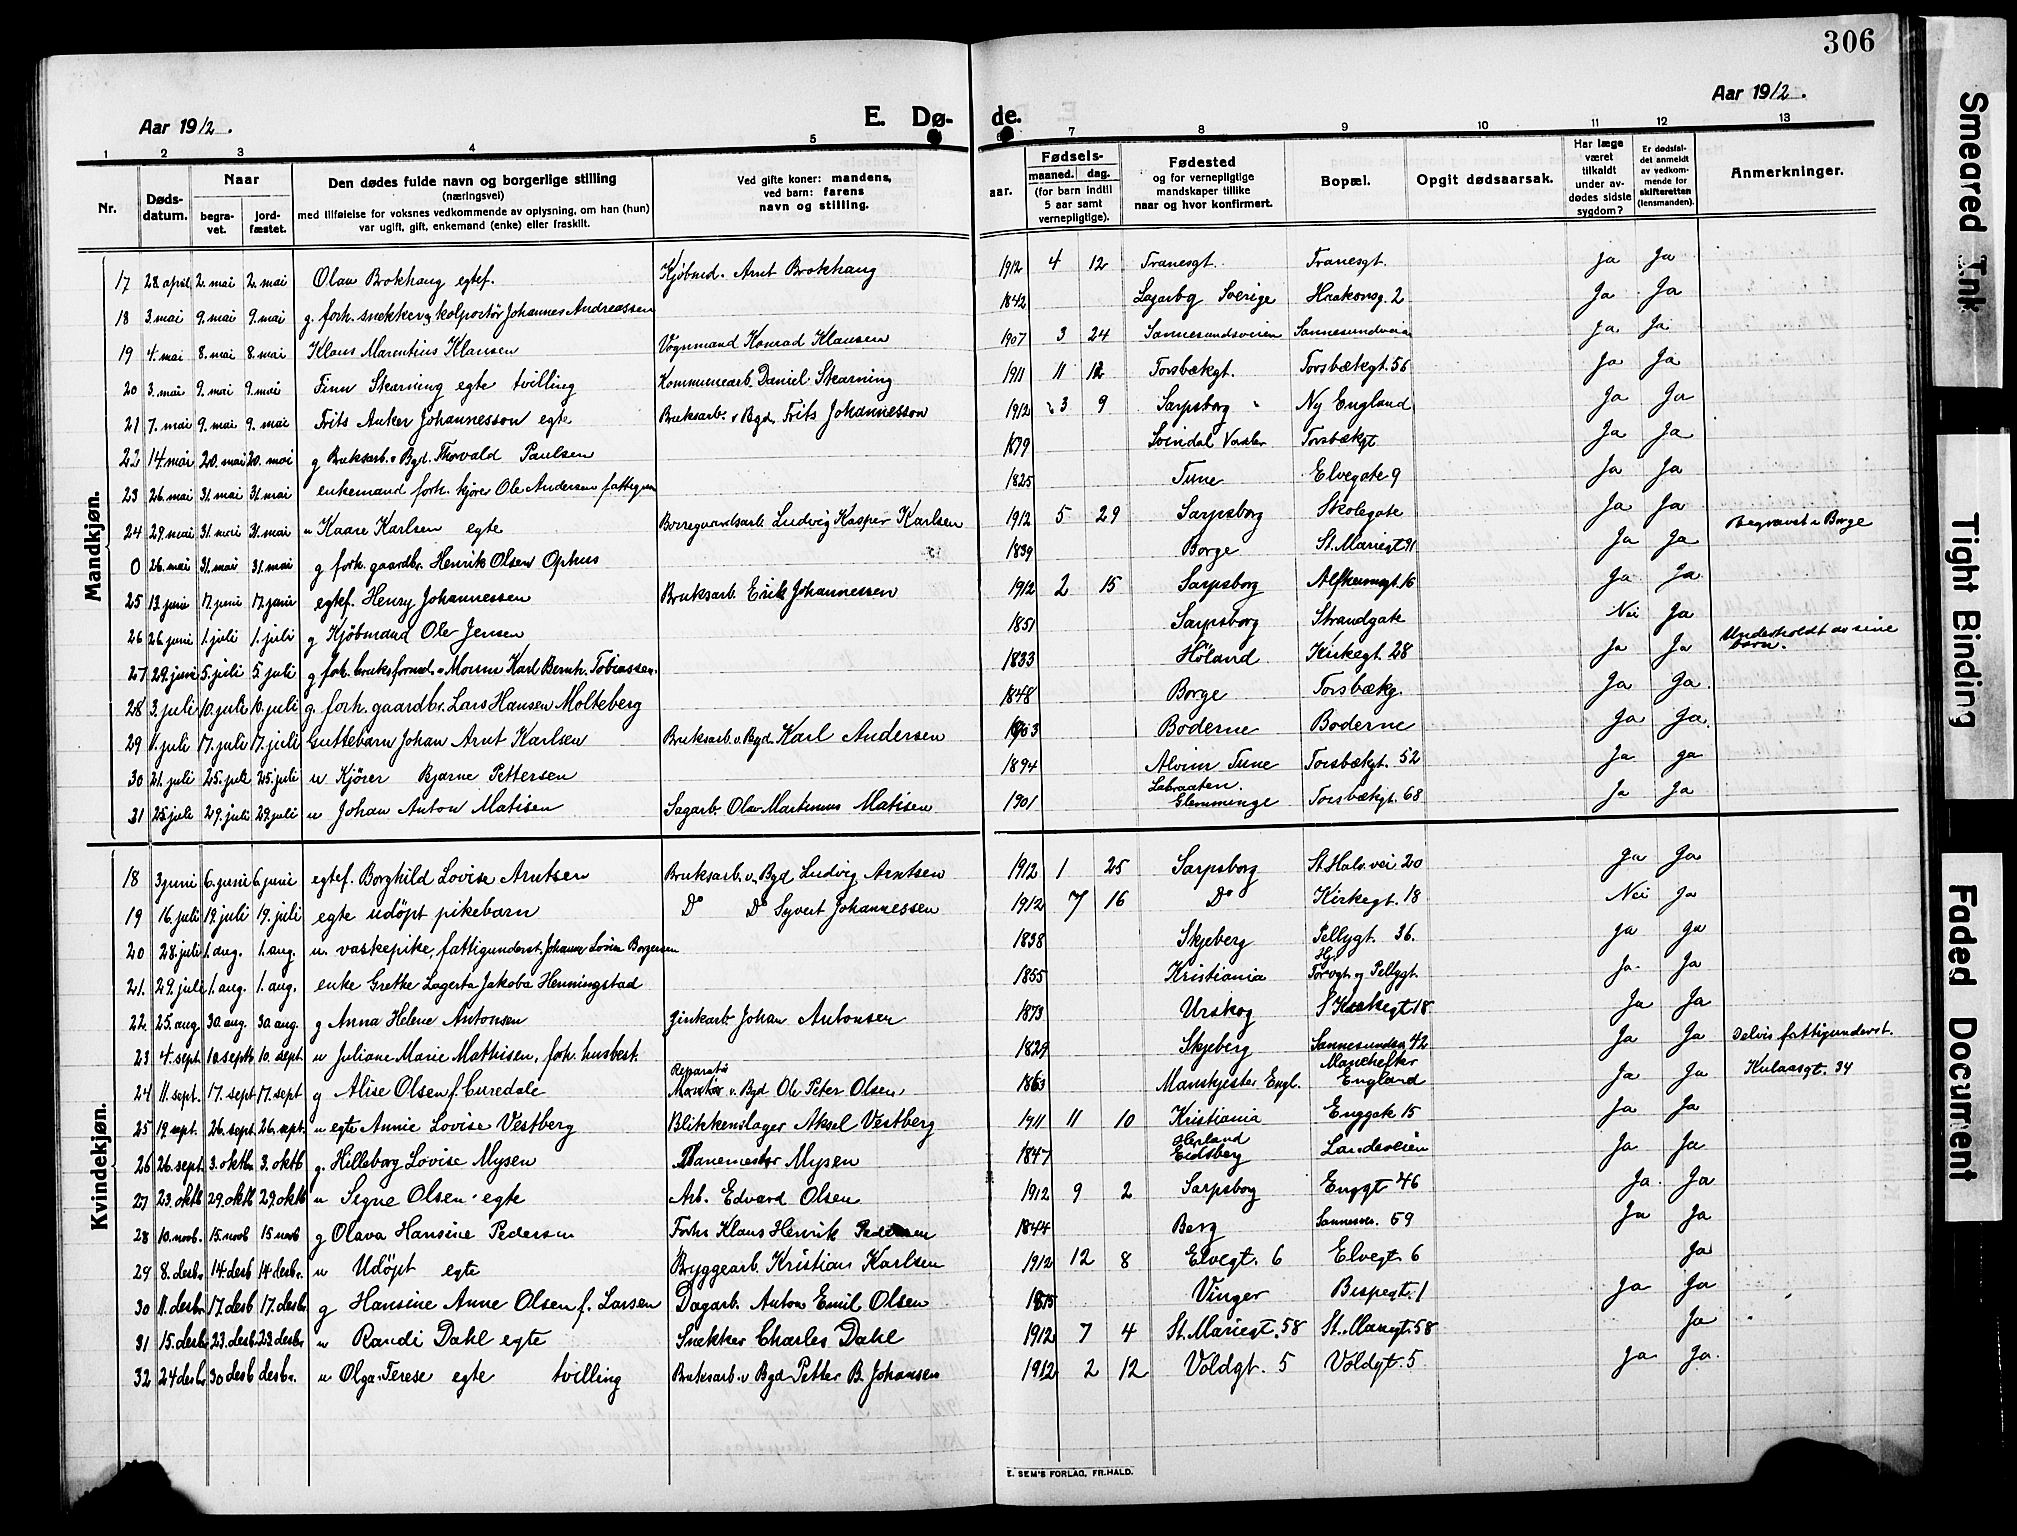 306
Aar 1912.
E. Dø-
de.
Aar 1912.
1 2 3 4 5 7 8 9 10 11 12 13
Nr.
Døds-
datum.
Naar
begra-
vet.
jord-
fæstet.
Den dødes fulde navn og borgerlige stilling
(næringsvei)
med tilføielse for voksnes vedkommende av oplysning, om han (hun)
var ugift, gift, enkemand (enke) eller fraskilt.
Ved gifte koner: mandens,
ved barn: farens
navn og stilling.
aar.
Fødsels-
maaned. dag.
(for barn indtil
5 aar samt
vernepligtige).
Fødested
og for vernepligtige
mandskaper tillike
naar og hvor konfirmert.
Bopæl.
Opgit dødsaarsak.
Har læge
været
tilkaldt
under av-
dødes sidste
sygdom?
Er dødsfal-
det anmeldt
av vedkom-
mende for
skifteretten
(lensmanden).
Anmerkninger.
Mandkjøn.
17 28. april 2. mai 2. mai Olau Brokhaug egtef. Kjøbmd. Arnt Brokhaug 1912 4 12 Tranesgt. Tranesgt. Ja Ja
18 3. mai 9. mai 9. mai g. forh. snekker og kolportør Johannes Andreassen 1842 Sverige Haakonsg. 2 Ja Ja
19 4. mai 8. mai 8. mai Klaus Marentius Klausen Vognmand Konrad Klausen 1907 3 24 Sannesundsveien Sannesundveien Ja Ja
20 3. mai 9. mai 9. mai Finn Skarning egte tvilling Kommunearb. Daniel Skarning 1911 11 12 Torsbækgt. Torsbækgt. 56 Ja Ja
21 7. mai 9. mai 9. mai Frits Anker Johannesson egte Bruksarb. v. Bgd. Frits Johannesson 1912 3 9 Sarpsborg Ny England Ja Ja
22 14. mai 20. mai 20. mai g Bruksarb. v. Bgd. Thorvald Paulsen 1879 Svindal Vaaler Torsbækgt Ja Ja
23 26. mai 31. mai 31. mai enkemand forh. kjører Ole Andersen fattigun 1825 Tune Elvegate 9 Ja Ja
24 29. mai 31. mai 31. mai u Kaare Karlsen egte Borregaardsarb. Ludvig Kasper Karlsen 1912 5 29 Sarpsborg Skolegate Ja Ja
0 26. mai 31. mai 31. mai g forh. gaardbr. Henrik Olsen Ophus 1839 Borge St. Mariegt 91 Ja Ja Begravet i Borge
25 13. juni 17. juni 17. juni egtef. Henry Johannessen Bruksarb. Erik Johannessen 1912 2 15 Sarpsborg 16 Ja Ja
26 26. juni 1. juli 1. juli g Kjøbmand Ole Jensen 1851 Sarpsborg Strandgate Nei Ja
27 29. juni 5. juli 5. juli g forh. bruksformd. v. Karl Bernh. Tobiassen 1833 Høland Kirkegt. 28 Ja Ja Underholdt av sine
barn.
28 3. juli 10. juli 10. juli g. forh. gaardbr. Lars Hansen Molteberg 1848 Borge Torsbækg. Ja Ja.
29 11. juli 17. juli 17. juli Guttebarn Johan Arnt Karlsen Bruksarb. v. Bgd. Karl Andersen 1903 Boderne Boderne Ja Ja.
30 21. juli 25. juli 25. juli u Kjører Bjarne Pettersen 1894 Alvim Tune Torsbækgt. 52 Ja Ja
31 25. juli 29. juli 29. juli u Johan Anton Matisen Sagarb. Olav Martinius Matisen 1901 Labraaten.
Glemminge Torsbækgt. 68 Ja Ja
Kvindekjøn.
18 3 juni 6. juni 6. juni egtef. Borghild Lovise Arntsen Bruksarb. v. Bgd Ludvig Arntsen 1912 1 25 Sarpsborg St. Halv. vei 20 Ja Ja
19 16. juli 19. juli 19. juli egte udøpt pikebarn Do Do Syvert Johannessen 1912 7 16 Do Kirkegt. 18 Nei Ja
20 28. juli 1. aug. 1. aug. u. vaskepike, fattigunderst. Johanne Lovise Borgersen 1838 Skjeberg Pellygt. 36. Ja Ja
21. 29. juli 1. aug. 1. aug. enke Grethe Lagerta Jakoba Henningstad 1855 Kristiania Hj.
Torvgt. og Pellygt. Ja. Ja
22 25. aug 30 aug. 30 aug. g Anna Helene Antonsen Zinkarb. Johan Antonsen 1873 Urskog Kirkegt 18. Ja Ja
23 4. sept. 10. septb 10. sept u Juliane Marie Mathisen, forh. husbest. 1829 Skjeberg Sannesundsv. 42 Ja Ja Delvis fattigunderst.
24 11. sept. 17. sept 17. sept g Alise Olsen f. Curedale Reparatø
v. Bgd Ole Peter Olsen 1863 Manskjester Engl. Manchester
England Ja Ja Kulaasgt. 34
25 19 sept. 26. sept 26. sept. u egte Annie Lovise Vestberg Blikkenslager Aksel Vestberg 1911 11 10 Kristiania Enggate 15 Ja Ja
26 26. sept 3. oktb 3. oktb g. Hilleborg Lovise Mysen Banemester Mysen 1847 Herland
Eidsberg Landeveien Ja Ja
27 23. oktb 29. oktb 29. oktb u Signe Olsen egte Arb. Edvard Olsen 1912 9 2 Sarpsborg Enggt 46 Ja. Ja
28 10. novb. 15. novb 15 novb g Olava Hansine Pedersen Forhv. Klaus Henrik Pedersen 1844 Berg Sannesv. 59 Ja Ja
29 8. desbr. 14. desb 14. desbr. u Udøpt egte Bryggearb. Kristian Karlsen 1912 12 8 Elvegt. 6 Elvegt. 6 Ja
30 11. desbr. 17. desb 17. desbr. g Hansine Anne Olsen f. Larsen Dagarb. Anton Emil Olsen 1875 Vinger Bispegt. 1 Ja Ja
31 15. desbr. 23. desb. 23. desbr. u Randi Dahl egte Snekker Charles Dahl 1912 7 4 St. Mariegt. 58 St. Mariegt. 58 Ja
32 24 desb. 30 desb desbr. u Olga Terese egte tvilling Bruksarb. v Bgd Petter B. Johansen 1912 2 12 Voldgt. 5 Voldgt. 5 Ja Ja.
E. SEM'S FORLAG, FR.HALD.
Smeared Ink
Tight Binding
Faded Document